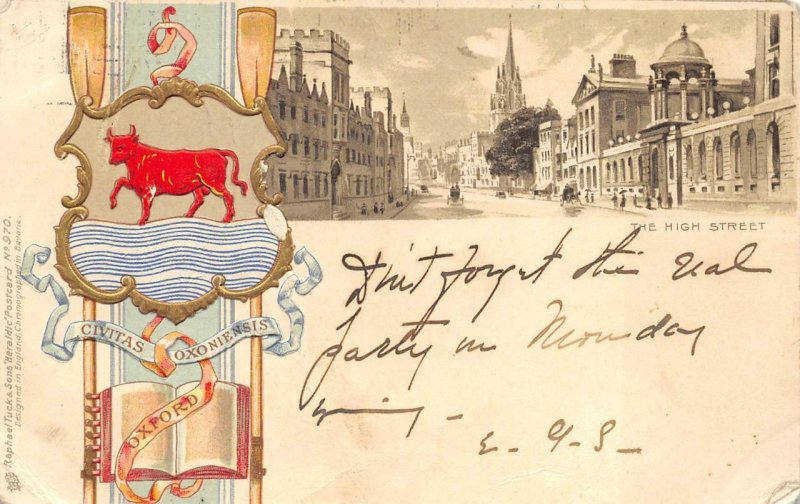 THE HIGH STREET
CIVITAS OXONIENSIS
OXFORD
Raphael Tuck & Sons "Heraldic" Postcard Nº 970.
Designed in England, Chromographed in Bavaria.
Don't forget the
party on Monday
E. G. S.